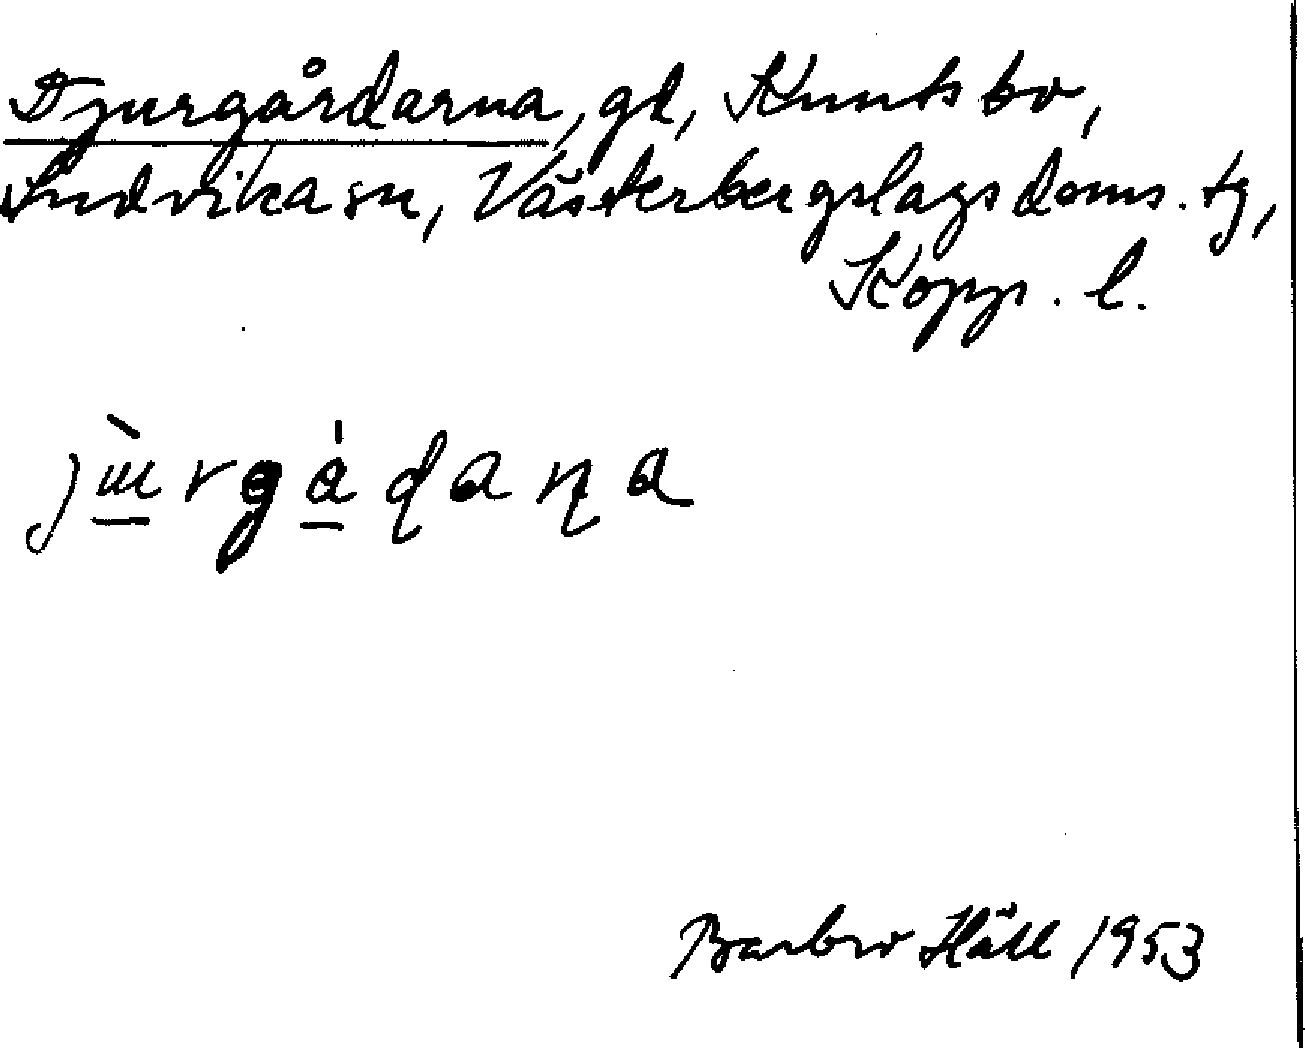 Djurgårdarna, gd, Knutsbo,
Ludvika sn, Västerbergslags doms. tg,
Kopp. l.
Barbro Häll 1953